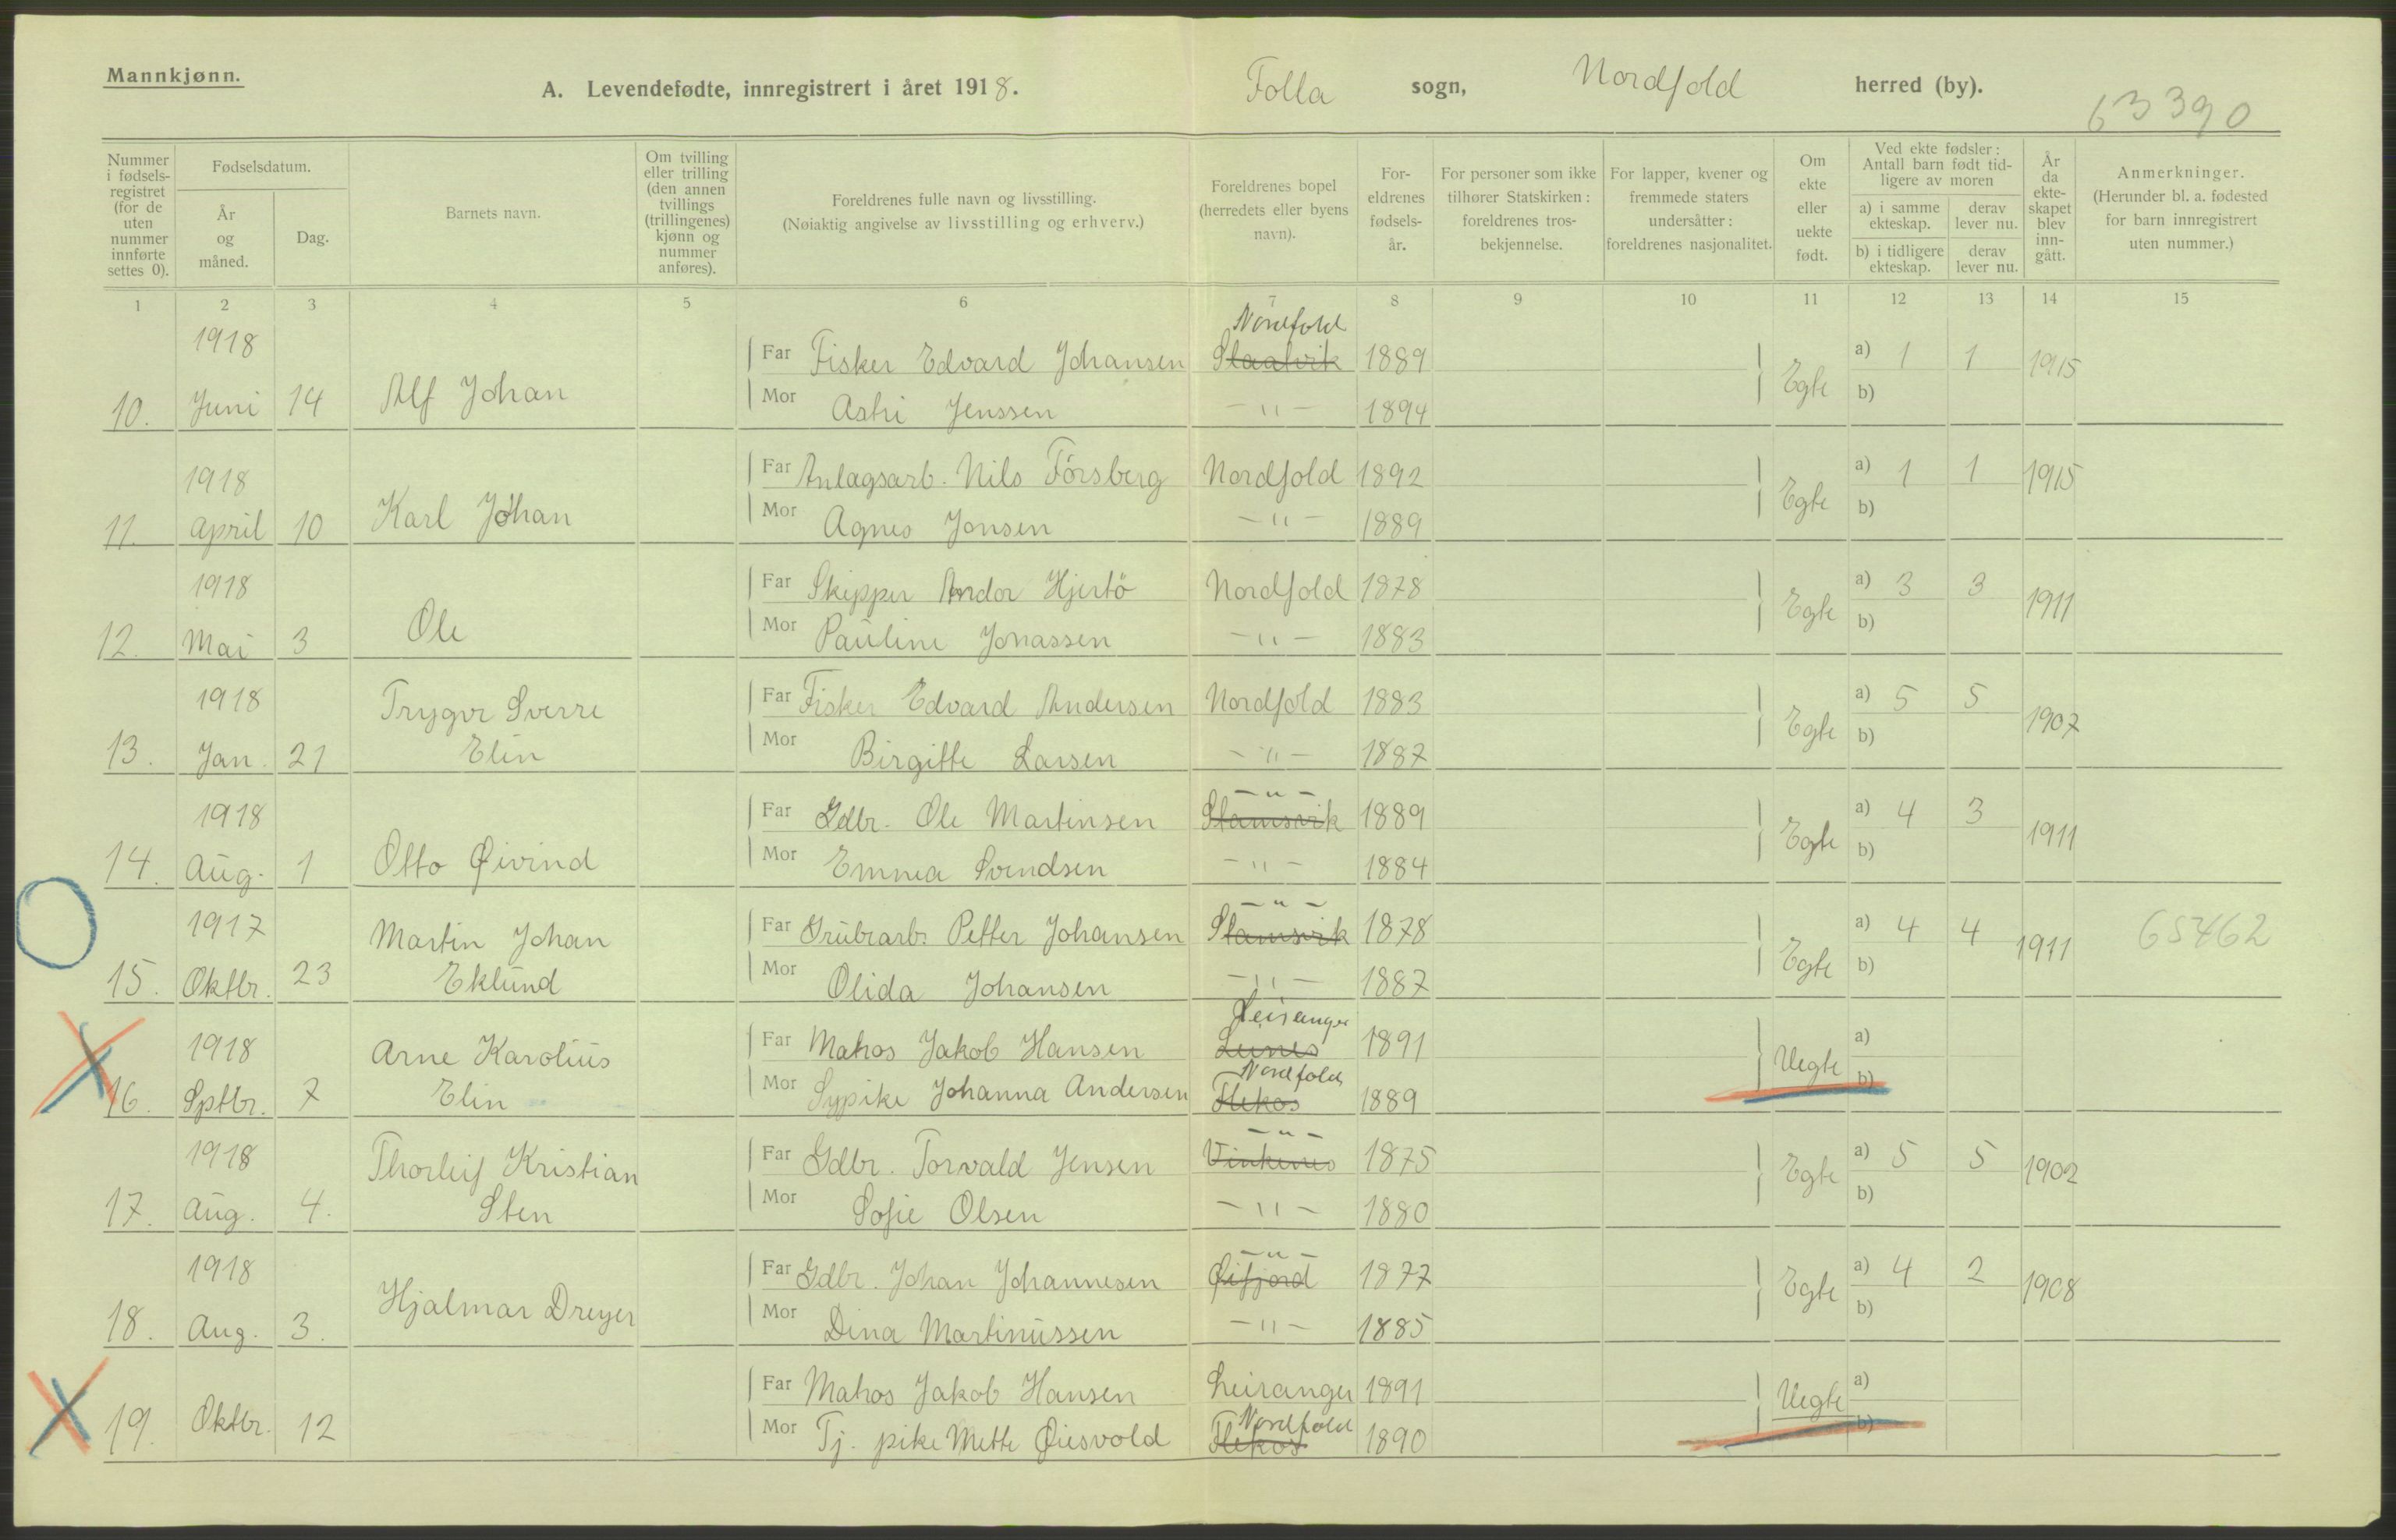 Mannkjønn.
A. Levendefødte, innregistrert i året 1918. Folla sogn, Nordfold herred (by).
63390
Nummer i fødsels-registret (for de uten nummer innførte settes 0).
Fødselsdatum.
År og måned.
Dag.
Barnets navn.
Om tvilling eller trilling (den annen tvillings (trillingenes) kjønn og nummer anføres).
Foreldrenes fulle navn og livsstilling.
(Nøiaktig angivelse av livsstilling og erhverv.)
Foreldrenes bopel (herredets eller byens navn).
For-eldrenes fødsels-år.
For personer som ikke tilhører Statskirken: foreldrenes tros-bekjennelse.
For lapper, kvener og fremmede staters undersåtter: foreldrenes nasjonalitet.
Om ekte eller uekte født.
Ved ekte fødsler: Antall barn født tid-ligere av moren
a) i samme ekteskap.
derav lever nu.
b) i tidligere ekteskap.
derav lever nu.
År da ekte-skapet blev inn-gått.
Anmerkninger.
(Herunder bl. a. fødested for barn innregistrert uten nummer.)
1 2 3 4 5 6 7 8 9 10 11 12 13 14 15
1918 Nordfold
Far Fisker Edvard Johansen 1889 a) 1 1 1915
10. Juni 14 Alf Johan Egte b)
Mor Jenssen -"- 1894
1918 Far Anlagsarb. Nils Forsberg Nordfold 1892 a) 1 1 1915
11. April 10 Karl Johan Egte b)
Mor Agnes Jonsen -"- 1889
1918 Far Skipper Andor Hjertö Nordfold 1878 a) 3 3 1911
12. Mai 3 Ole Egte b)
Mor Pauline Jonassen -"- 1883
1918 Trygve Sverre Far Fisker Edvard Andersen Nordfold 1883 a) 5 5 1907
13. Jan. 21 Elin Egte b)
Mor Birgitte Larsen -"- 1887
-"-
1918 Far Gdbr. Ole Martinsen Stamsvik 1889 a) 4 3 1911
14. Aug. 1 Otto Øivind Egte b)
Mor Emma Svendsen -"- 1884
-"-
1917 Martin Johan Far Grubearb. Petter Johansen Stamsvik 1878 a) 4 4 1911 65462
15. Oktbr. 23 Eklund Egte b)
Mor Olida Johansen -"- 1887
Leiranger
1918 Arne Karolius Far Matros Jakob Hansen Leines 1891 a)
Nordfold
16. Sptbr. 7 Elin Uegte b)
Mor Sypike Johanna Andersen 1889
-"-
1918 Thorleif Kristian Far Gdbr. Torvald Jensen Vinkenes 1875 a) 5 5 1902
17. Aug. 4. Sten Egte b)
Mor Sofie Olsen -"- 1880
-"-
1918 Far Gdbr. Johan Johannesen Øifjord 1877 a) 4 2 1908
18. Aug. 3. Hjalmar Dreyer Egte b)
Mor Dina Martinussen -"- 1885
Far Matros Jakob Hansen Leiranger 1891 a)
Nordfold
19. Oktbr. 12 Uegte b)
Mor Tj. pike Mette 1890